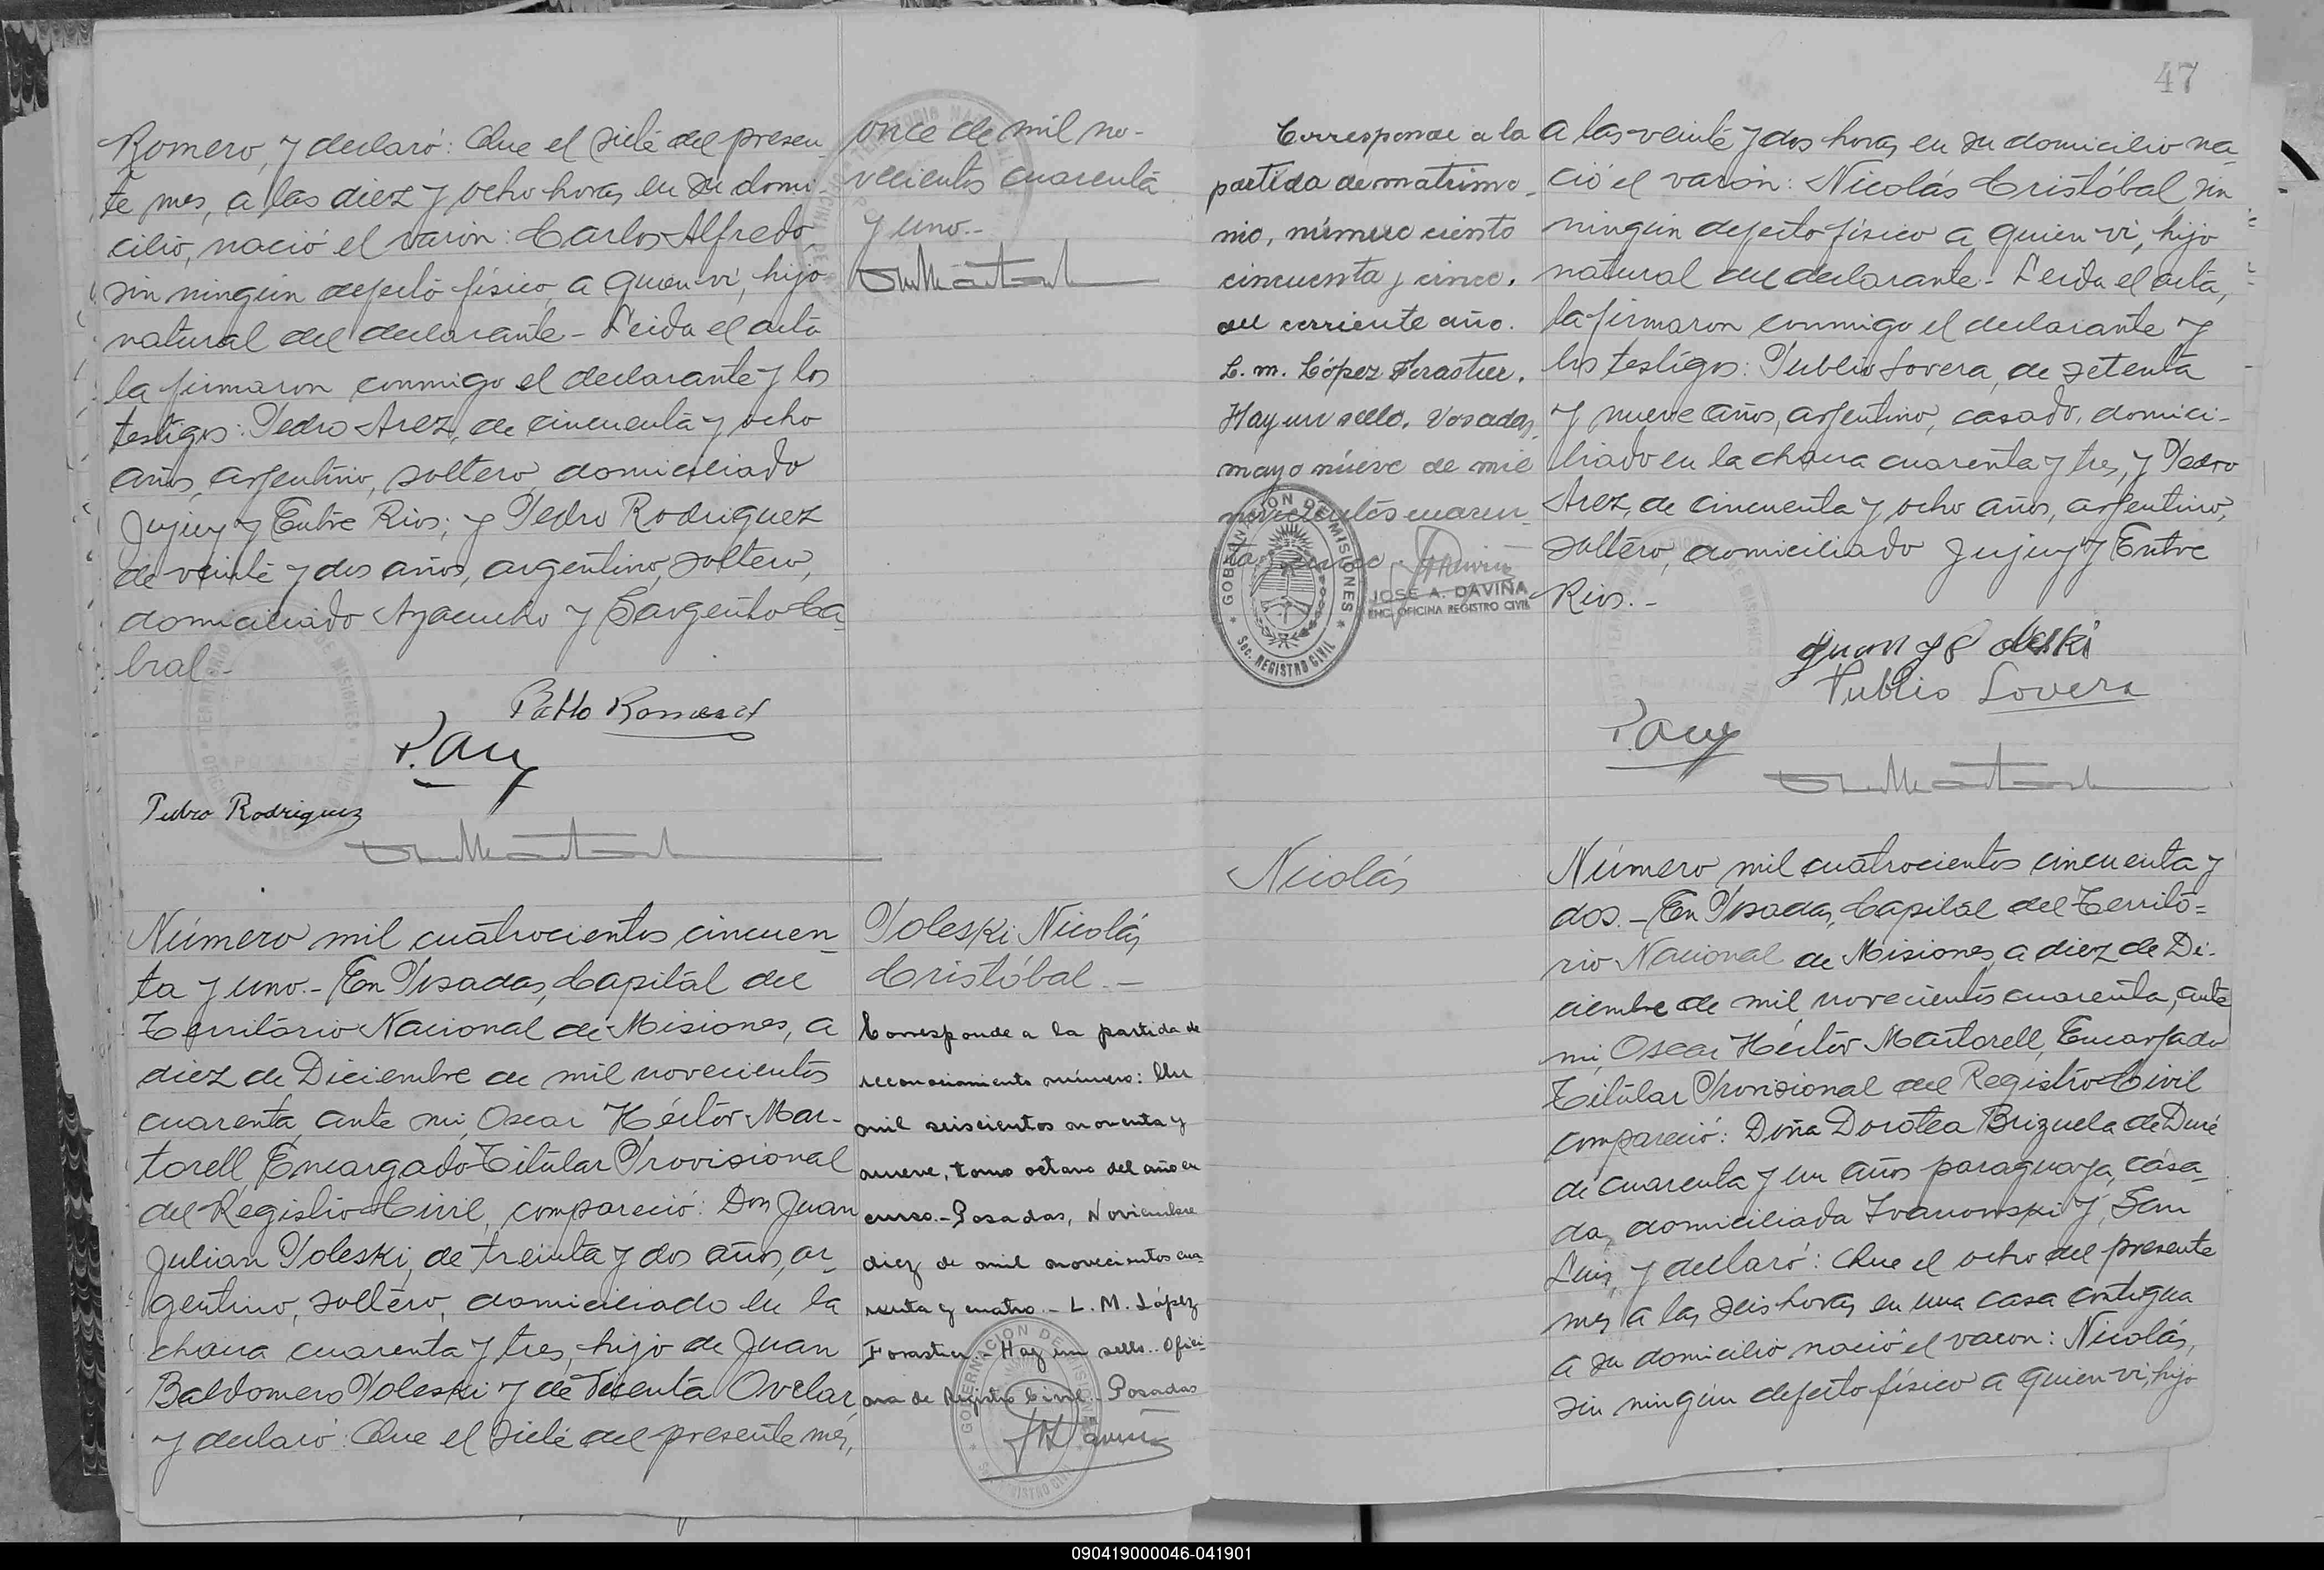 47
Romero, y declaró: Que el siete del presen-
te mes, a las diez y ocho horas, en su domi-
cilio, nació el varón: Carlos Alfredo,
sin ningún defecto físico, a quien ví, hijo
natural del declarante - Leida el acta
la firmaron conmigo el declarante y los
testigos: Pedro Arez, de cincuenta y ocho
años, argentino, soltero, domiciliado
Jujuy y Entre Rios; y Pedro Rodriguez
de veinte y dos años, argentino, soltero,
domiciliado Ayacucho y Sargento Ca-
bral -
Pablo Romero
P. Arez
Pedro Rodriguez
Número mil cuatrocientos cincuen-
ta y uno. - En Posadas, Capital del
Territorio Nacional de Misiones, a
diez de Diciembre de mil novecientos
cuarenta, ante mi, Oscar Héctor Mar-
torell, Encargado Titular Provisional
del Registro Civil, compareció: Don Juan
Julian Poleski, de treinta y dos años, ar-
gentino, soltero, domiciliado en la
chacra cuarenta y tres, hijo de Juan
Baldomero Poleski y de Vicenta Ovelar
y declaró: Que el siete del presente mes,
once de mil no-
vecientos cuarenta
y uno.-
Poleski Nicolás
Cristóbal. -
Corresponde a la partida de
reconocimiento número: Un
mil seiscientos noventa y
nueve, tomo octavo del año en
curso. - Posadas, Noviembre
diez de mil novecientos cua-
renta y cuatro. - L. M. López
Forastier - Hay un sello. Ofici-
na de Registro Civil. Posadas
GOBERNACION DE MISIONES
Corresponde a la
partida de matrimo-
nio, número ciento
cincuenta y cinco.
del corriente año.
L. M. López Forastier.
Hay un sello. Posadas,
mayo nueve de mil
novecientos cuaren-
ta y cinco.
GOBERNACION DE MISIONES
SEC. REGISTRO CIVIL
JOSE A. DAVIÑA
ENC. OFICINA REGISTRO CIVIL
Nicolás
a las veinte y dos horas, en su domicilio na-
ció el varón: Nicolás Cristóbal sin
ningún defecto físico a quien ví, hijo
natural del declarante - Leida el acta,
la firmaron conmigo el declarante y
los testigos: Publio Lovera, de setenta
y nueve años, argentino, casado, domici-
liado en la chacra cuarenta y tres, y Pedro
Arez, de cincuenta y ocho años, argentino,
soltero, domiciliado Jujuy y Entre
Rios. -
Publio Lovera
P. Arez
Número mil cuatrocientos cincuenta y
dos. - En Posadas, Capital del Territo-
rio Nacional de Misiones, a diez de Di-
ciembre de mil novecientos cuarenta, ante
mi, Oscar Héctor Martorell, Encargado
Titular Provisional del Registro Civil
compareció: Doña Dorotea Brizuela de Duré
de cuarenta y un años paraguaya, casa-
da, domiciliada Ivanowski y San
Luis, y declaró: Que el ocho del presente
mes a las seis horas, en una casa contigua
a su domicilio nació el varon: Nicolás,
sin ningún defecto físico a quien ví, hijo
090419000046-041901